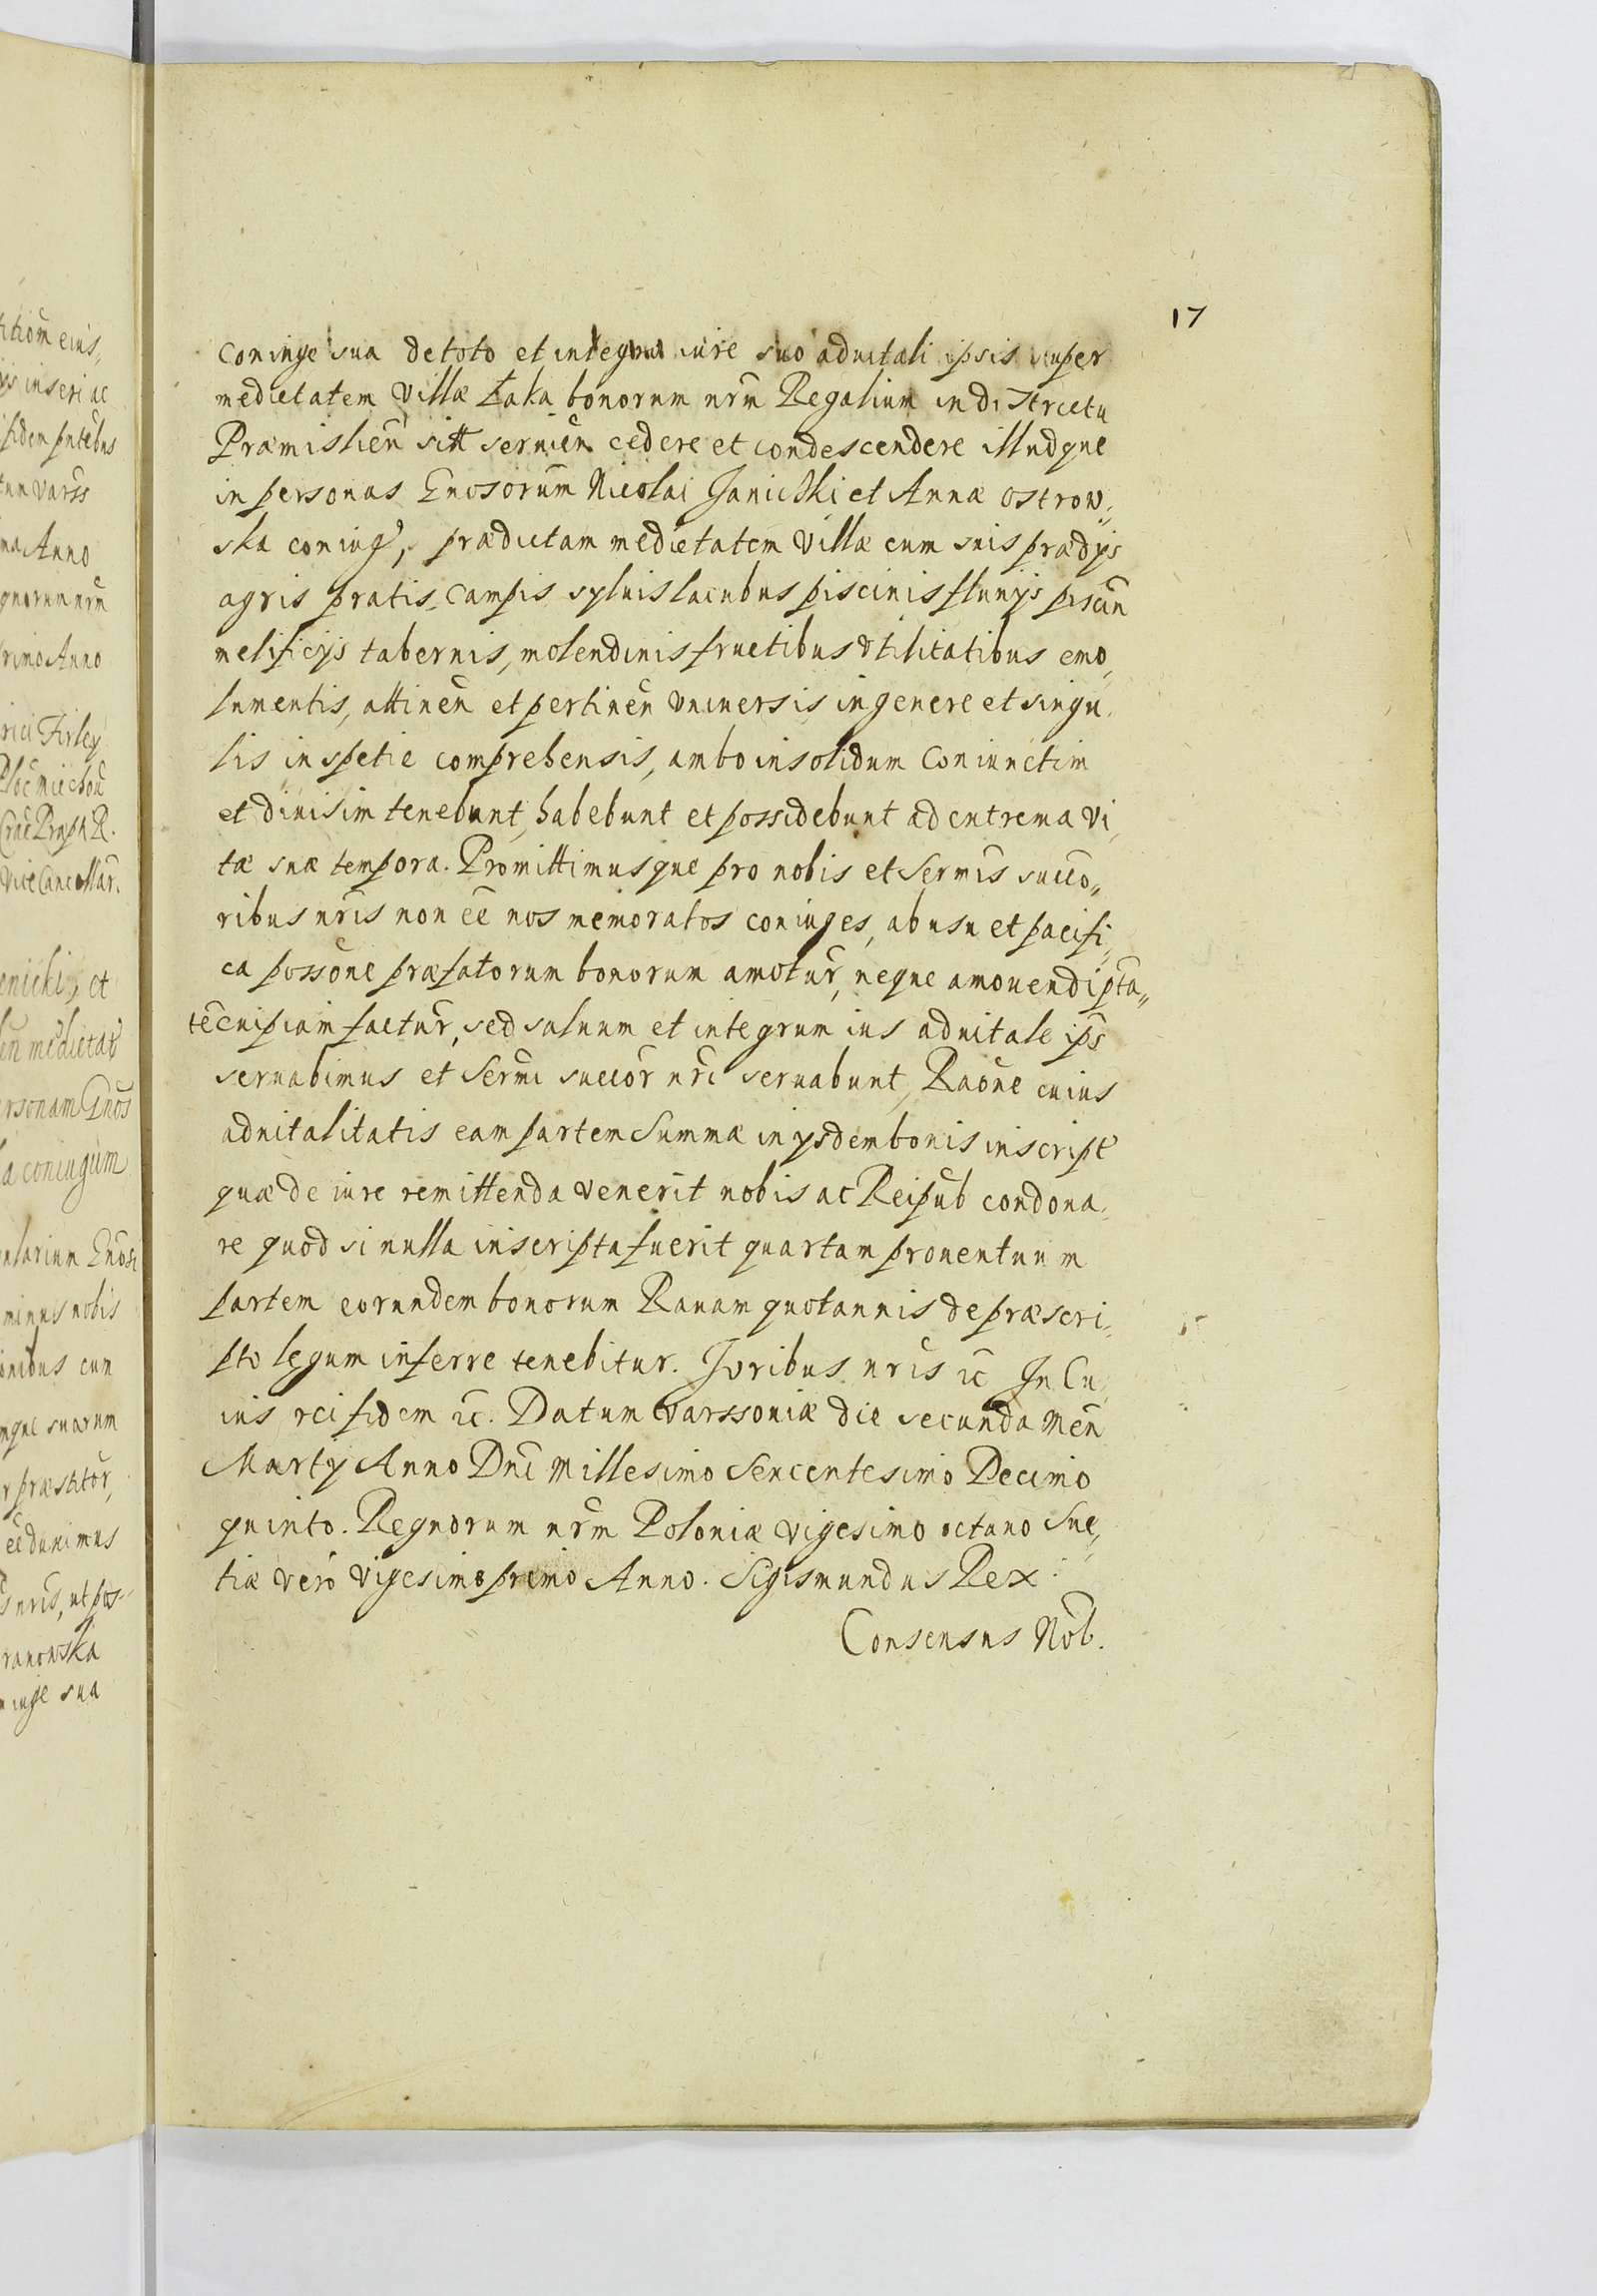 17
coniuge sua de toto et integro iure suo aduitali ipsis super
medietatem Villæ Łąka bonorum nrm̃ Regalium in districtu
Præmislień sitt seruień cedere et condescendere illudque
in personas Gnosorum̃ Nicolai Janicki et Annæ Ostrow„
ska coniug, prædictam medietatem Villæ cum suis prædijs
agris pratis, campis syluis lacubus piscinis fluuijs piscin̄
melificijs tabernis, molendinis fructibus vtilitatibus emo„
lumentis, attineñ et pertineñ vniuersis in genere et singu„
lis in spetie comprehensis, ambo insolidum coniunctim
et diuisim tenebunt, habebunt et possidebunt ad extrema vi„
tæ suæ tempora. Promittimusque pro nobis et Sermis succo„
ribus nris̃ non eẽ nos memoratos coniuges, ab usu et pacifi„
ca possõne præfatorum bonorum amotur̃, neque amouendi ptã„
tẽ cuipiam factur̃, sed saluum et integrum ius aduitale ips̃
seruabimus et Sermi succor̃ nri seruabunt, Raõne cuius
aduitalitatis eam partem Summæ in ysdem bonis inscript
quæ de iure remittenda venerit nobis ac Reipub condona„
re quod si nulla inscripta fuerit quartam prouentuum
partem eorundem bonorum Rauam quotannis de præscri„
pto legum inferre tenebitur. Juribus nris̃ ꝛc̃ In Cu„
ius rei fidem ꝛc̃. Datum Varssouiæ die secunda Meñ
Martij Anno Dni Millesimo Sexcentesimo Decimo
quinto. Regnorum nrm̃ Poloniæ vigesimo octauo Sue„
tiæ verò vigesimo primo Anno. Sigismundus Rex
Consensus Nob.